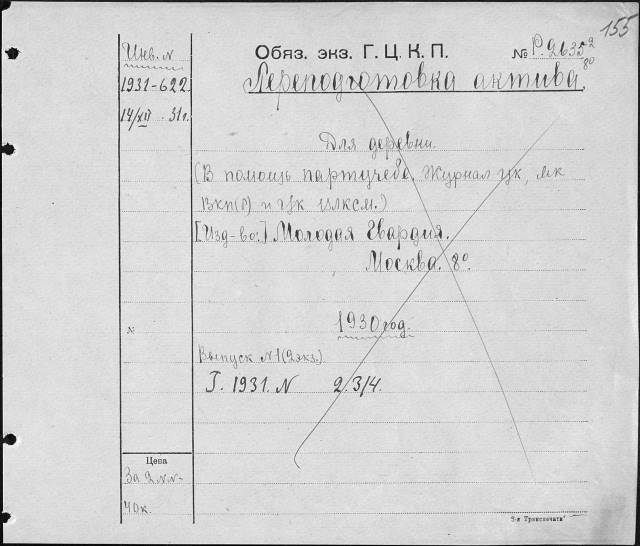 155
Инв. N
1931-622
14/XII. 31г.
Обяз. экз. Г. Ц. К. П. № Р. 2635 2/80
Переподготовка актива.
Для деревни.
(В помощь партучебе. Журнал ЦК, МК
ВКП(б) и ЦК ИЛКСМ.)
[Изд-во:] Молодая Гвардия.
Москва. 8°.
1930 год.
№
Выпуск N 1 (2 экз.)
Г. 1931. N 2. 3/4.
Цена
За 2 N.N-
40к.
3-я Транспечати